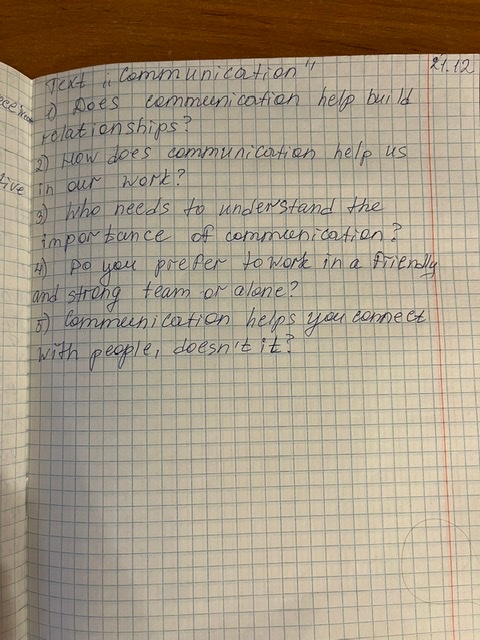 Text „Communication"
21.12
1) Does communication help build
relationships?
2) How does communication help us
in our work?
3) Who needs to understand the
importance of communication?
4) Do you prefer to work in a friendly
and strong team or alone?
5) Communication helps you connect
with people, doesn't it?